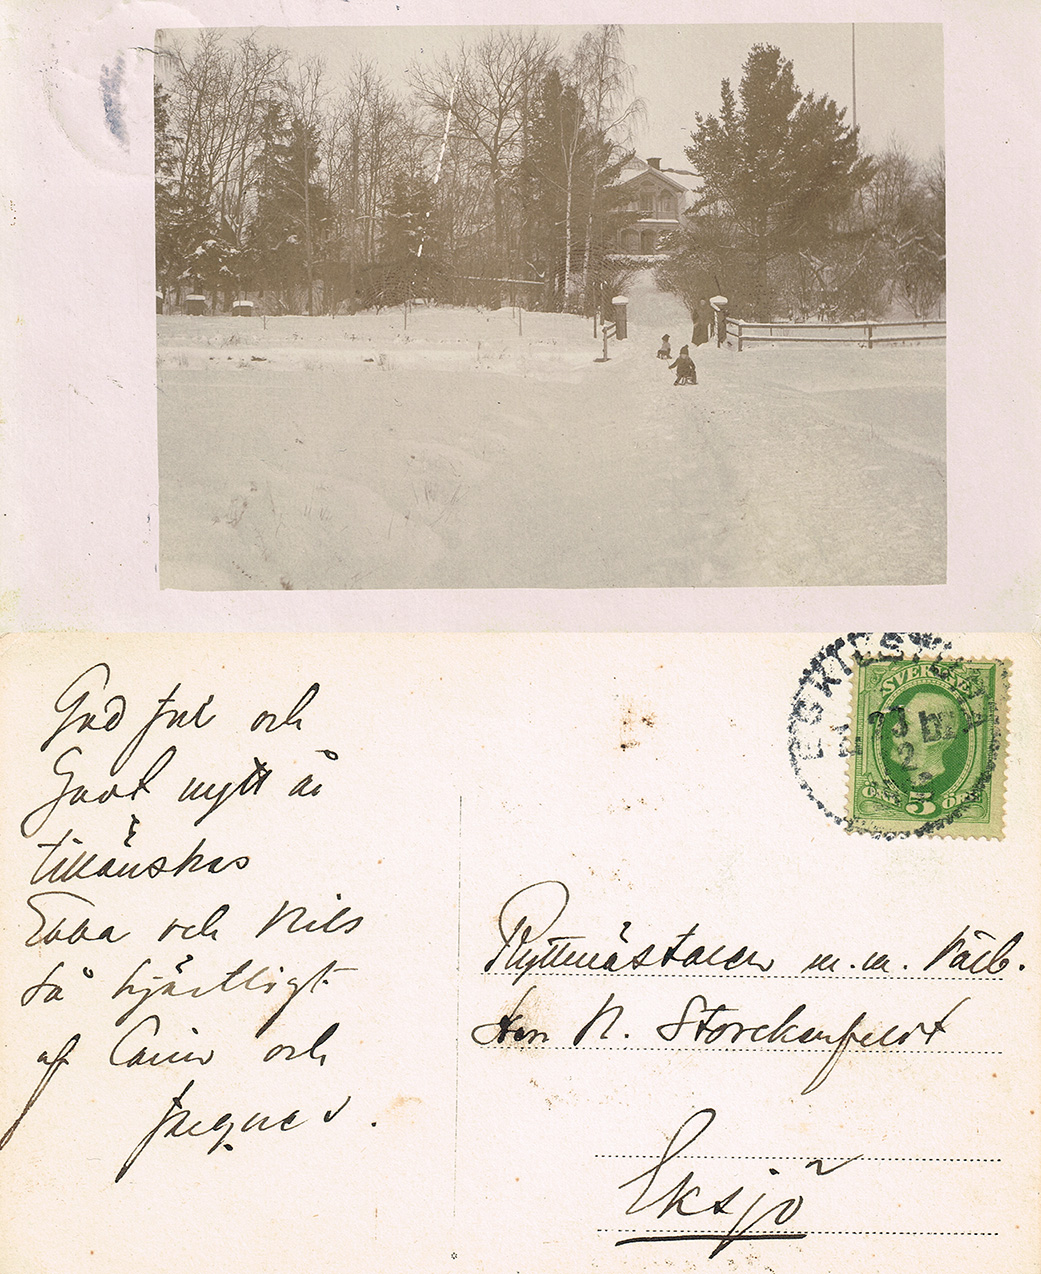 God Jul och
Godt nytt år
tillönskas
Ebba och Nils
så hjärtligt
af Carin och
Jacques.
ESKILSTUNA
23 DEC
SVERIGE
5
ÖRE
Ryttmästaren m.m. Välb.
Herr N. Storckenfeldt
Eksjö